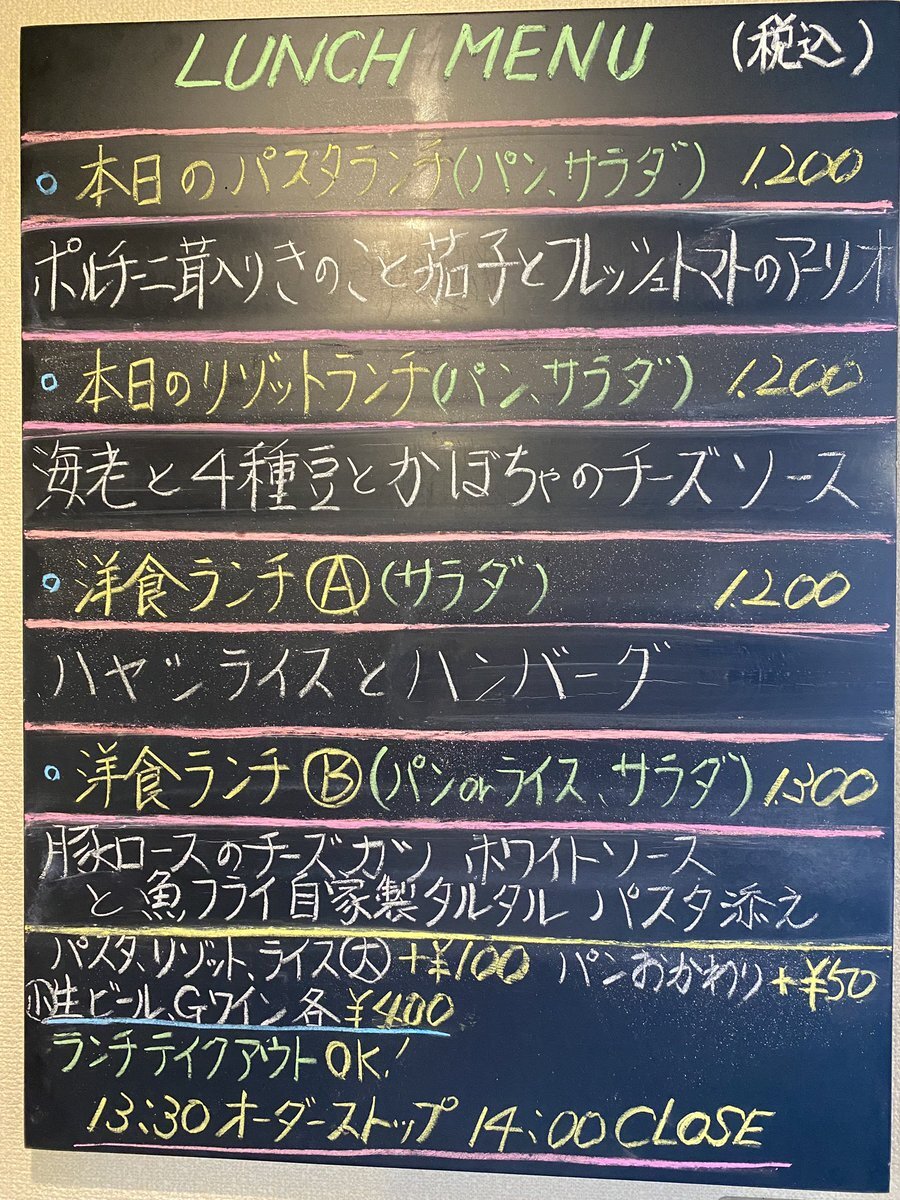 LUNCH MENU (税込)
本日のパスタランチ(パン、サラダ) 1.200
ポルチーニ茸入りきのこと茄子とフレッシュトマトのアーリオ
本日のリゾットランチ(パン、サラダ) 1.200
海老と4種豆とかぼちゃのチーズソース
洋食ランチⒶ(サラダ) 1.200
ハヤシライスとハンバーグ
洋食ランチⒷ(パンorライス、サラダ) 1.300
豚ロースのチーズカツ ホワイトソース
と魚フライ自家製タルタル パスタ添え
パスタ、リゾット、ライス㊅ +¥100 パンおかわり +¥50
小生ビール、Gワイン 各¥400
ランチテイクアウトOK!
13:30オーダーストップ 14:00 CLOSE